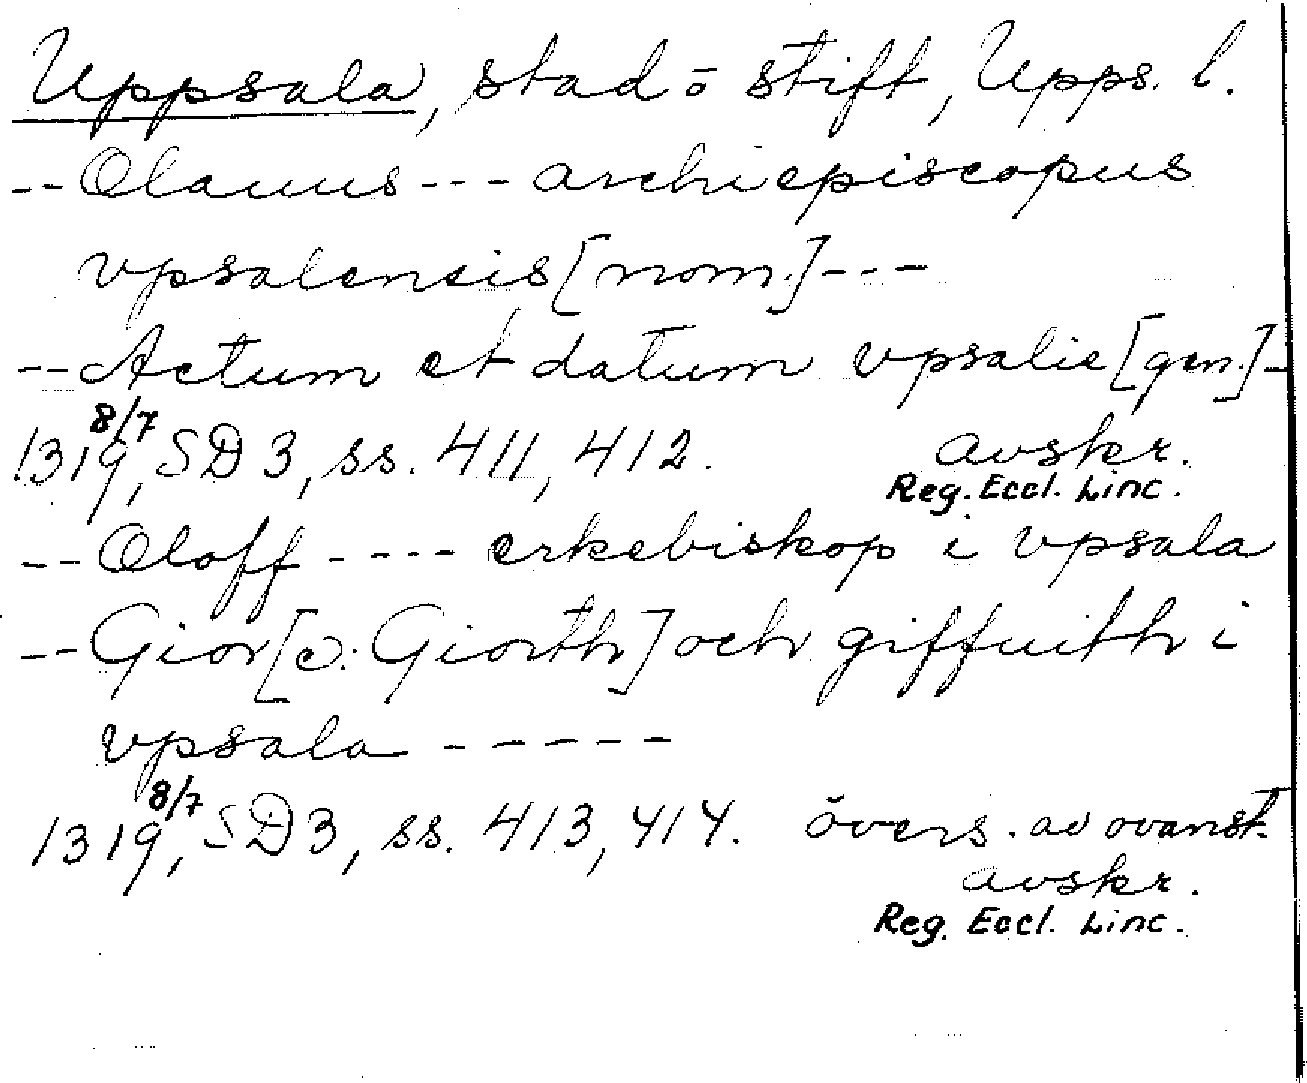 Uppsala, stad o stift, Upps. l.
-- Olauus --- archiepiscopus
vpsalensis [nom.] ---
-- Actum et datum vpsalie [gen.] -
1319 8/7, SD 3, ss. 411, 412. avskr.
Reg. Eccl. Linc.
-- Oloff ---- erkebiskop i vpsala
-- Gior [ɔ: Giorth] och giffuith i
vpsala -----
1319 8/7, SD 3, ss. 413, 414. övers. av ovanst.
avskr.
Reg. Eccl. Linc.